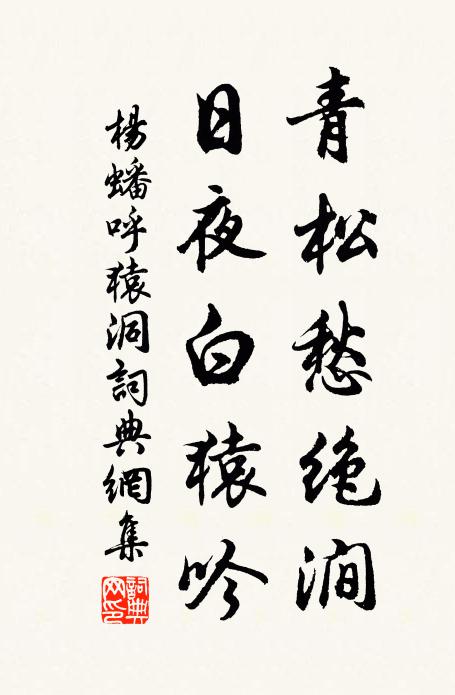 青松愁绝澗
日夜白猿吟
楊蟠呼猿洞詞典網集
詞典網印